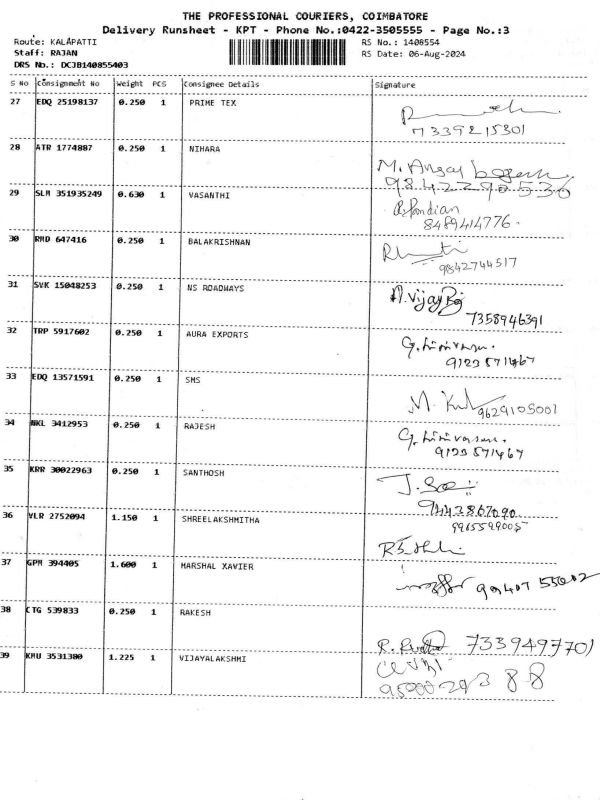 THE PROFESSIONAL COURIERS, COIMBATORE
Delivery Runsheet - KPT - Phone No.:0422-3505555 - Page No.:3
Route: KALAPATTI
RS No.: 1408554
Staff: RAJAN
RS Date: 06-Aug-2024
DRS No.: DCJB140855403
S No Consignment No Weight PCS Consignee Details Signature
27 EDQ 25198137 0.250 1 PRIME TEX
7339215301
28 ATR 1774887 0.250 1 NIHARA
M.
9842290536
29 SLM 351935249 0.630 1 VASANTHI
Pandian
8489414776.
30 RMD 647416 0.250 1 BALAKRISHNAN
9842744517
31 SVK 15048253 0.250 1 NS ROADWAYS
A.Vijay
7358946391
32 TRP 5917602 0.250 1 AURA EXPORTS
G.
9123571467
33 EDQ 13571591 0.250 1 SMS
M.
9629105001
34 NKL 3412953 0.250 1 RAJESH
G.
9123571467
35 KRR 30022963 0.250 1 SANTHOSH
J.
9442867090
36 VLR 2752094 1.150 1 SHREELAKSHMITHA
9965599005
37 GPM 394405 1.600 1 MARSHAL XAVIER
38 CTG 539833 0.250 1 RAKESH
R. 7339497701
39 KMU 3531380 1.225 1 VIJAYALAKSHMI